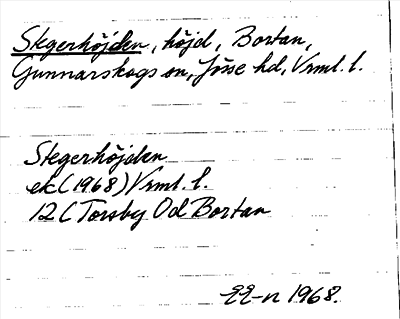 Stegerhöjden, höjd, Bortan,
Gunnarskogs sn, Jösse hd, Vrml. l.
Stegerhöjden
ek (1968) Vrml. l.
12 C Torsby Od Bortan
1968.